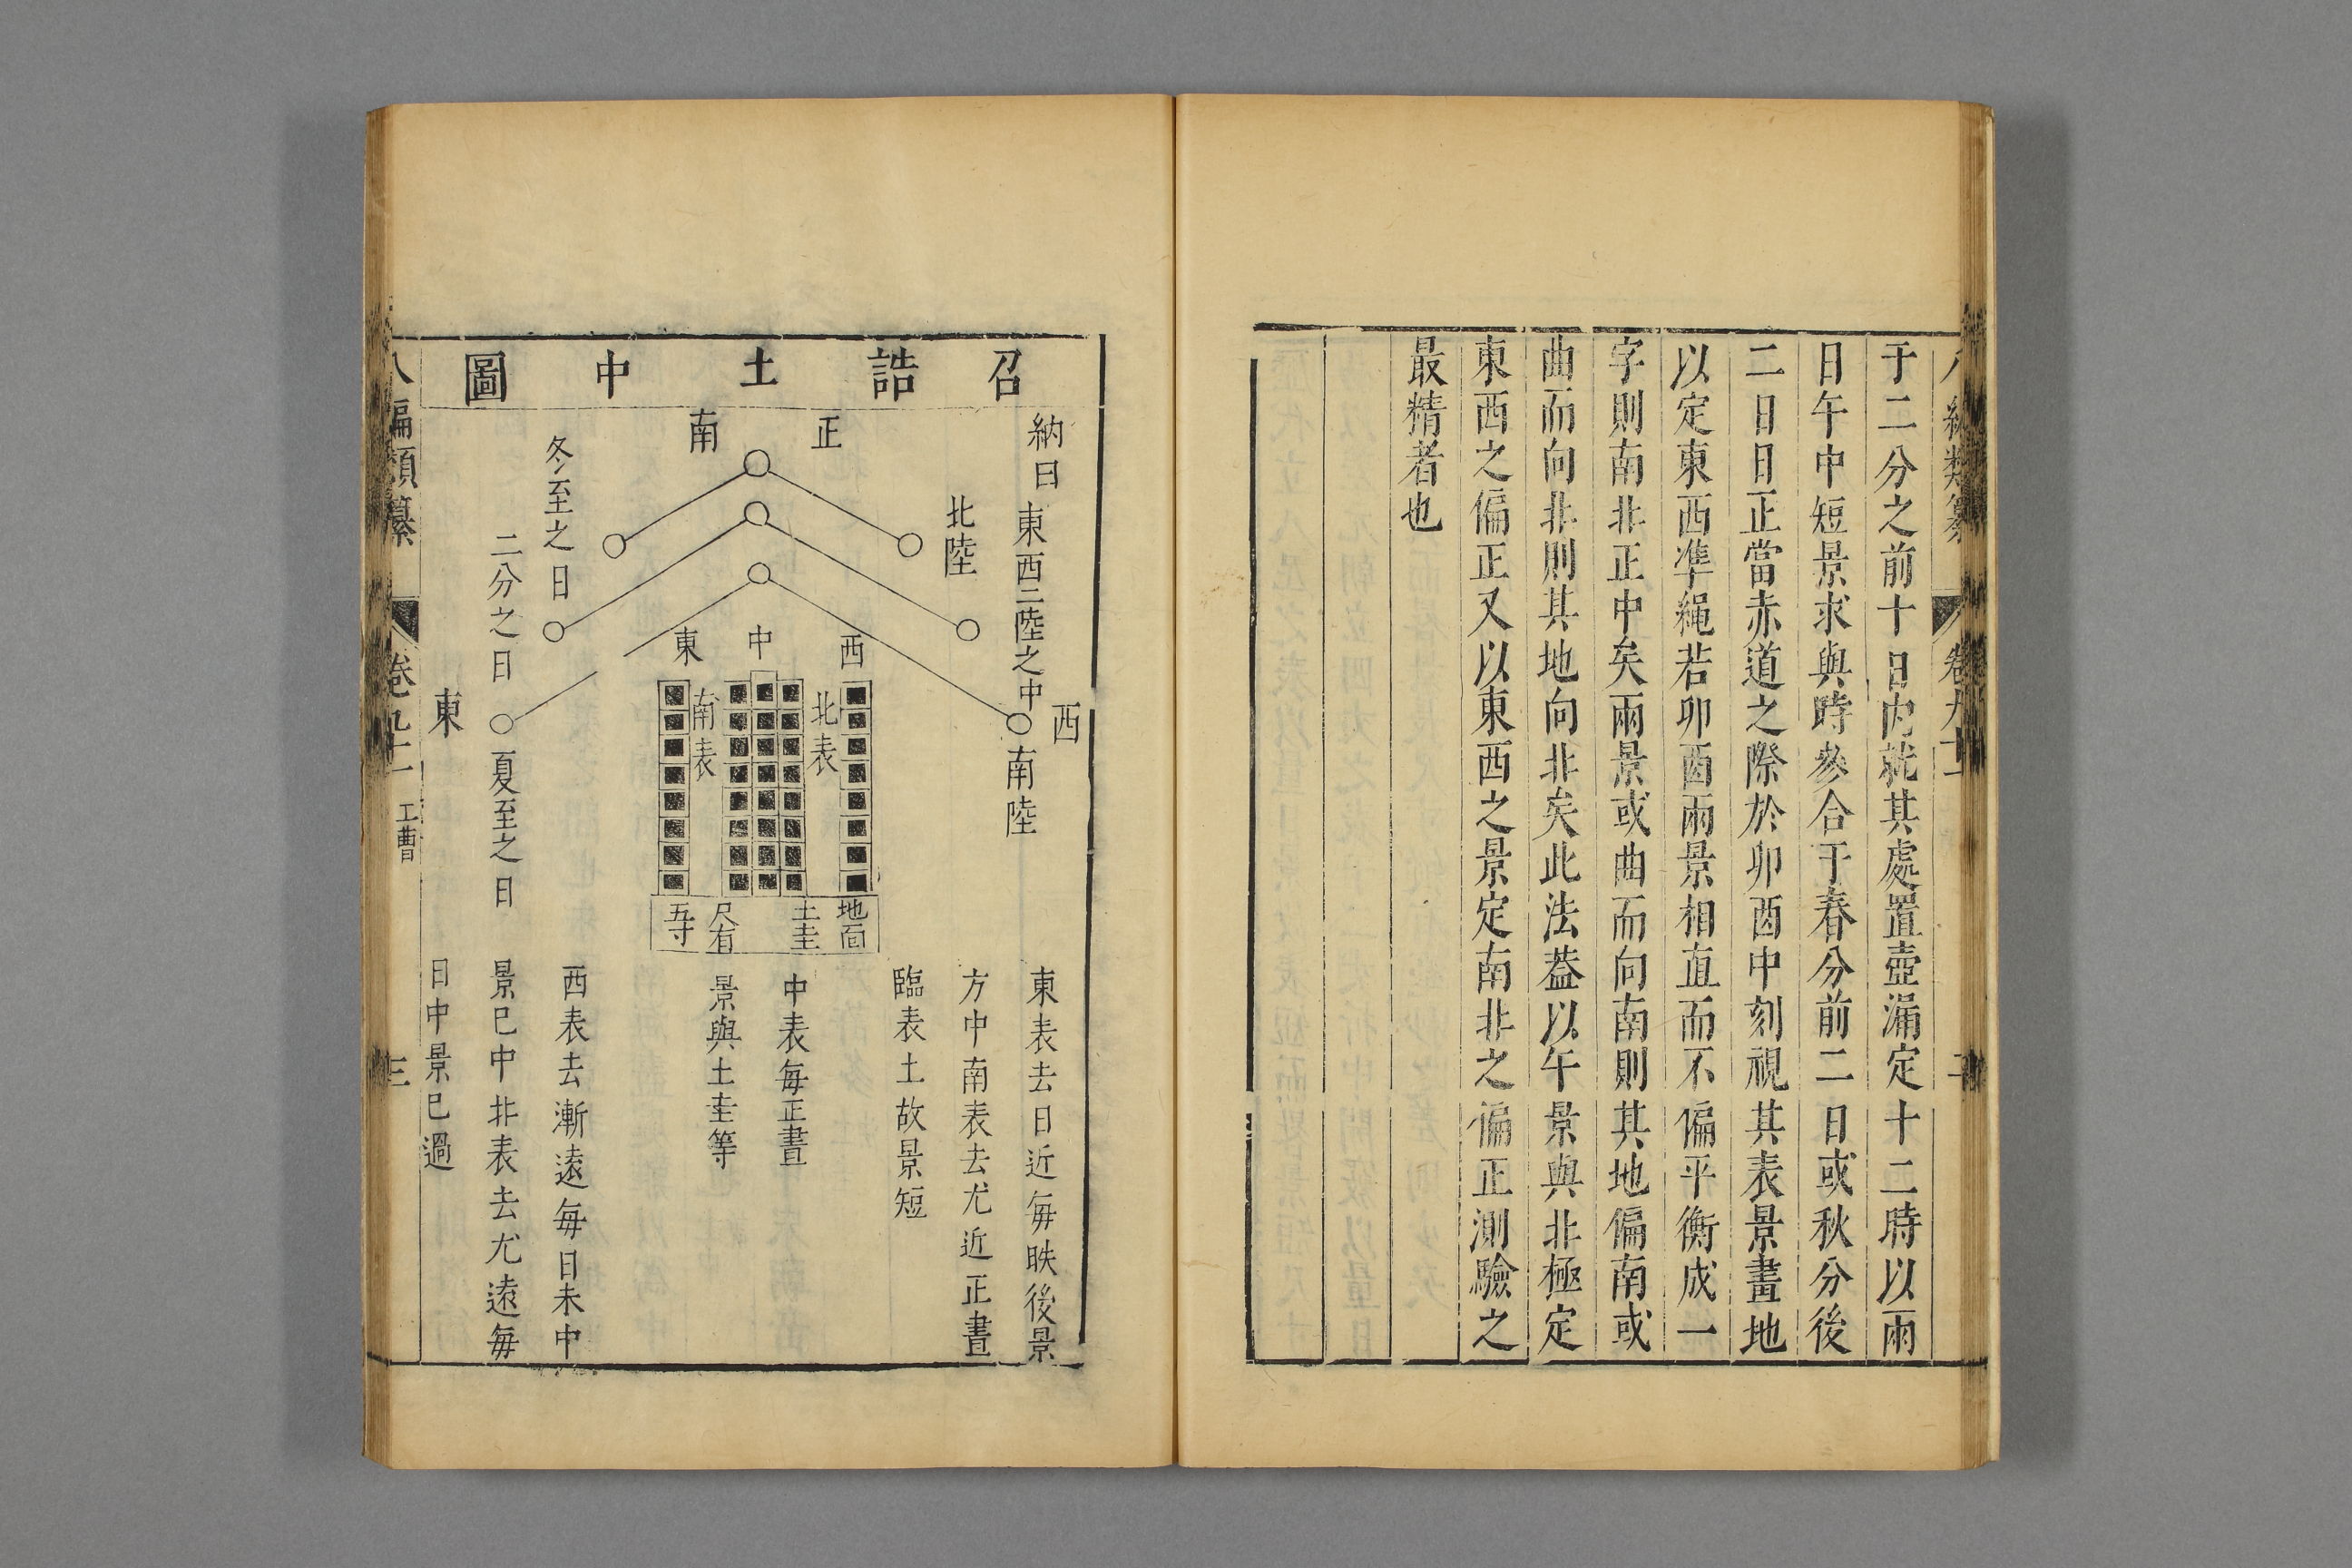 于二分之前十日内就其處置壺漏定十二時以兩
日午中短景求與時參合于春分前二日或秋分後
二日日正當赤道之際於卯酉中刻視其表景畫地
以定東西準繩若卯酉兩景相直而不偏平衡成一
字則南北正中矣兩景或曲而向南則其地偏南或
曲而向北則其地向北矣此法葢以午景與北極定
東西之偏正又以東西之景定南北之偏正測驗之
最精者也
召誥土中圖
納日
東西二陸之中
西
南陸
北陸
正南
冬至之日
二分之日
夏至之日
東
西
中
東
北表
南表
地面
土圭
尺有
五寸
東表去日近每昳後景
方中南表去尤近正晝
臨表土故景短
中表每正晝
景與土圭等
西表去漸遠每日未中
景巳中北表去尤遠每
日中景巳過
八編類纂
卷九十一
工曹
三